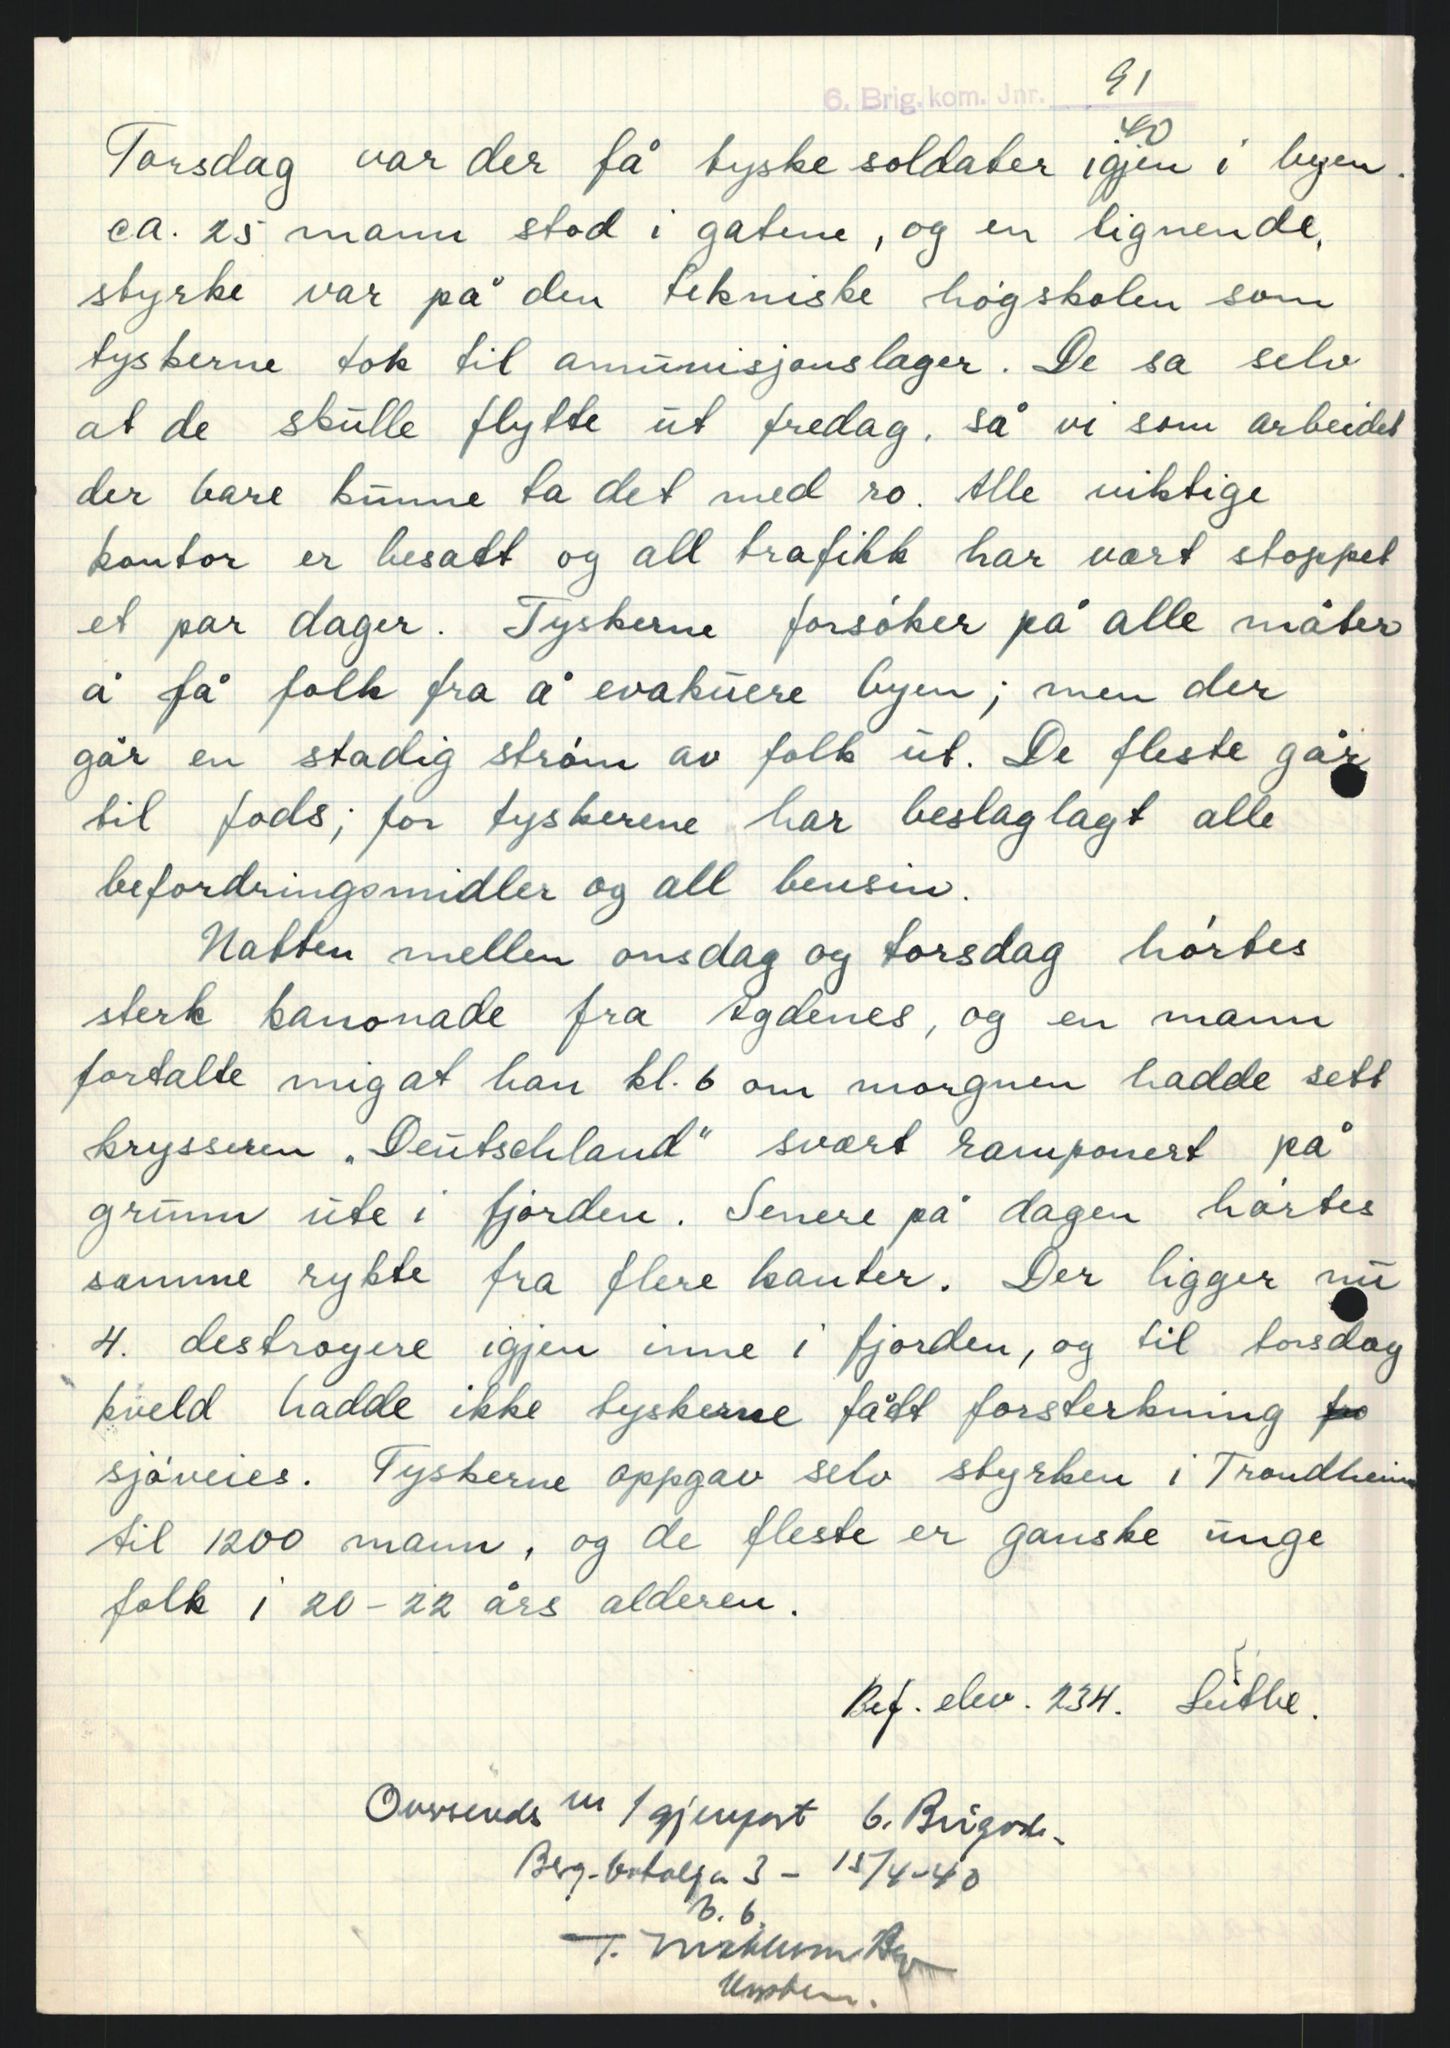 6. Brig. kom. Jnr. 91
40
Torsdag var der få tyske soldater igjen i byen.
ca. 25 mann stod i gatene, og en lignende,
styrke var på den tekniske høgskolen som
tyskerne tok til amunisjonslager. De sa selv
at de skulle flytte ut fredag, så vi som arbeidet
der bare kunne ta det med ro. Alle viktige
kontor er besatt og all trafikk har vært stoppet
et par dager. Tyskerne forsøker på alle måter
å få folk fra å evakuere byen; men der
går en stadig strøm av folk ut. De fleste går
til fods; for tyskerene har beslaglagt alle
befordringsmidler og all bensin.
Natten mellen onsdag og torsdag hørtes
sterk kanonade fra Agdenes, og en mann
fortalte mig at han kl. 6 om morgnen hadde sett
krysseren „Deutschland" svært ramponert på
grunn ute i fjorden. Senere på dagen hørtes
samme rykte fra flere kanter. Der ligger nu
4. destroyere igjen inne i fjorden, og til torsdag
kveld hadde ikke tyskerne fått forsterkning
sjøveies. Tyskerne oppgav selv styrken i Trondheim
til 1200 mann, og de fleste er ganske unge
folk i 20-22 års alderen.
Bef. elev. 234.
Oversends 6. Brigade.
3 - 15/4-40
T.